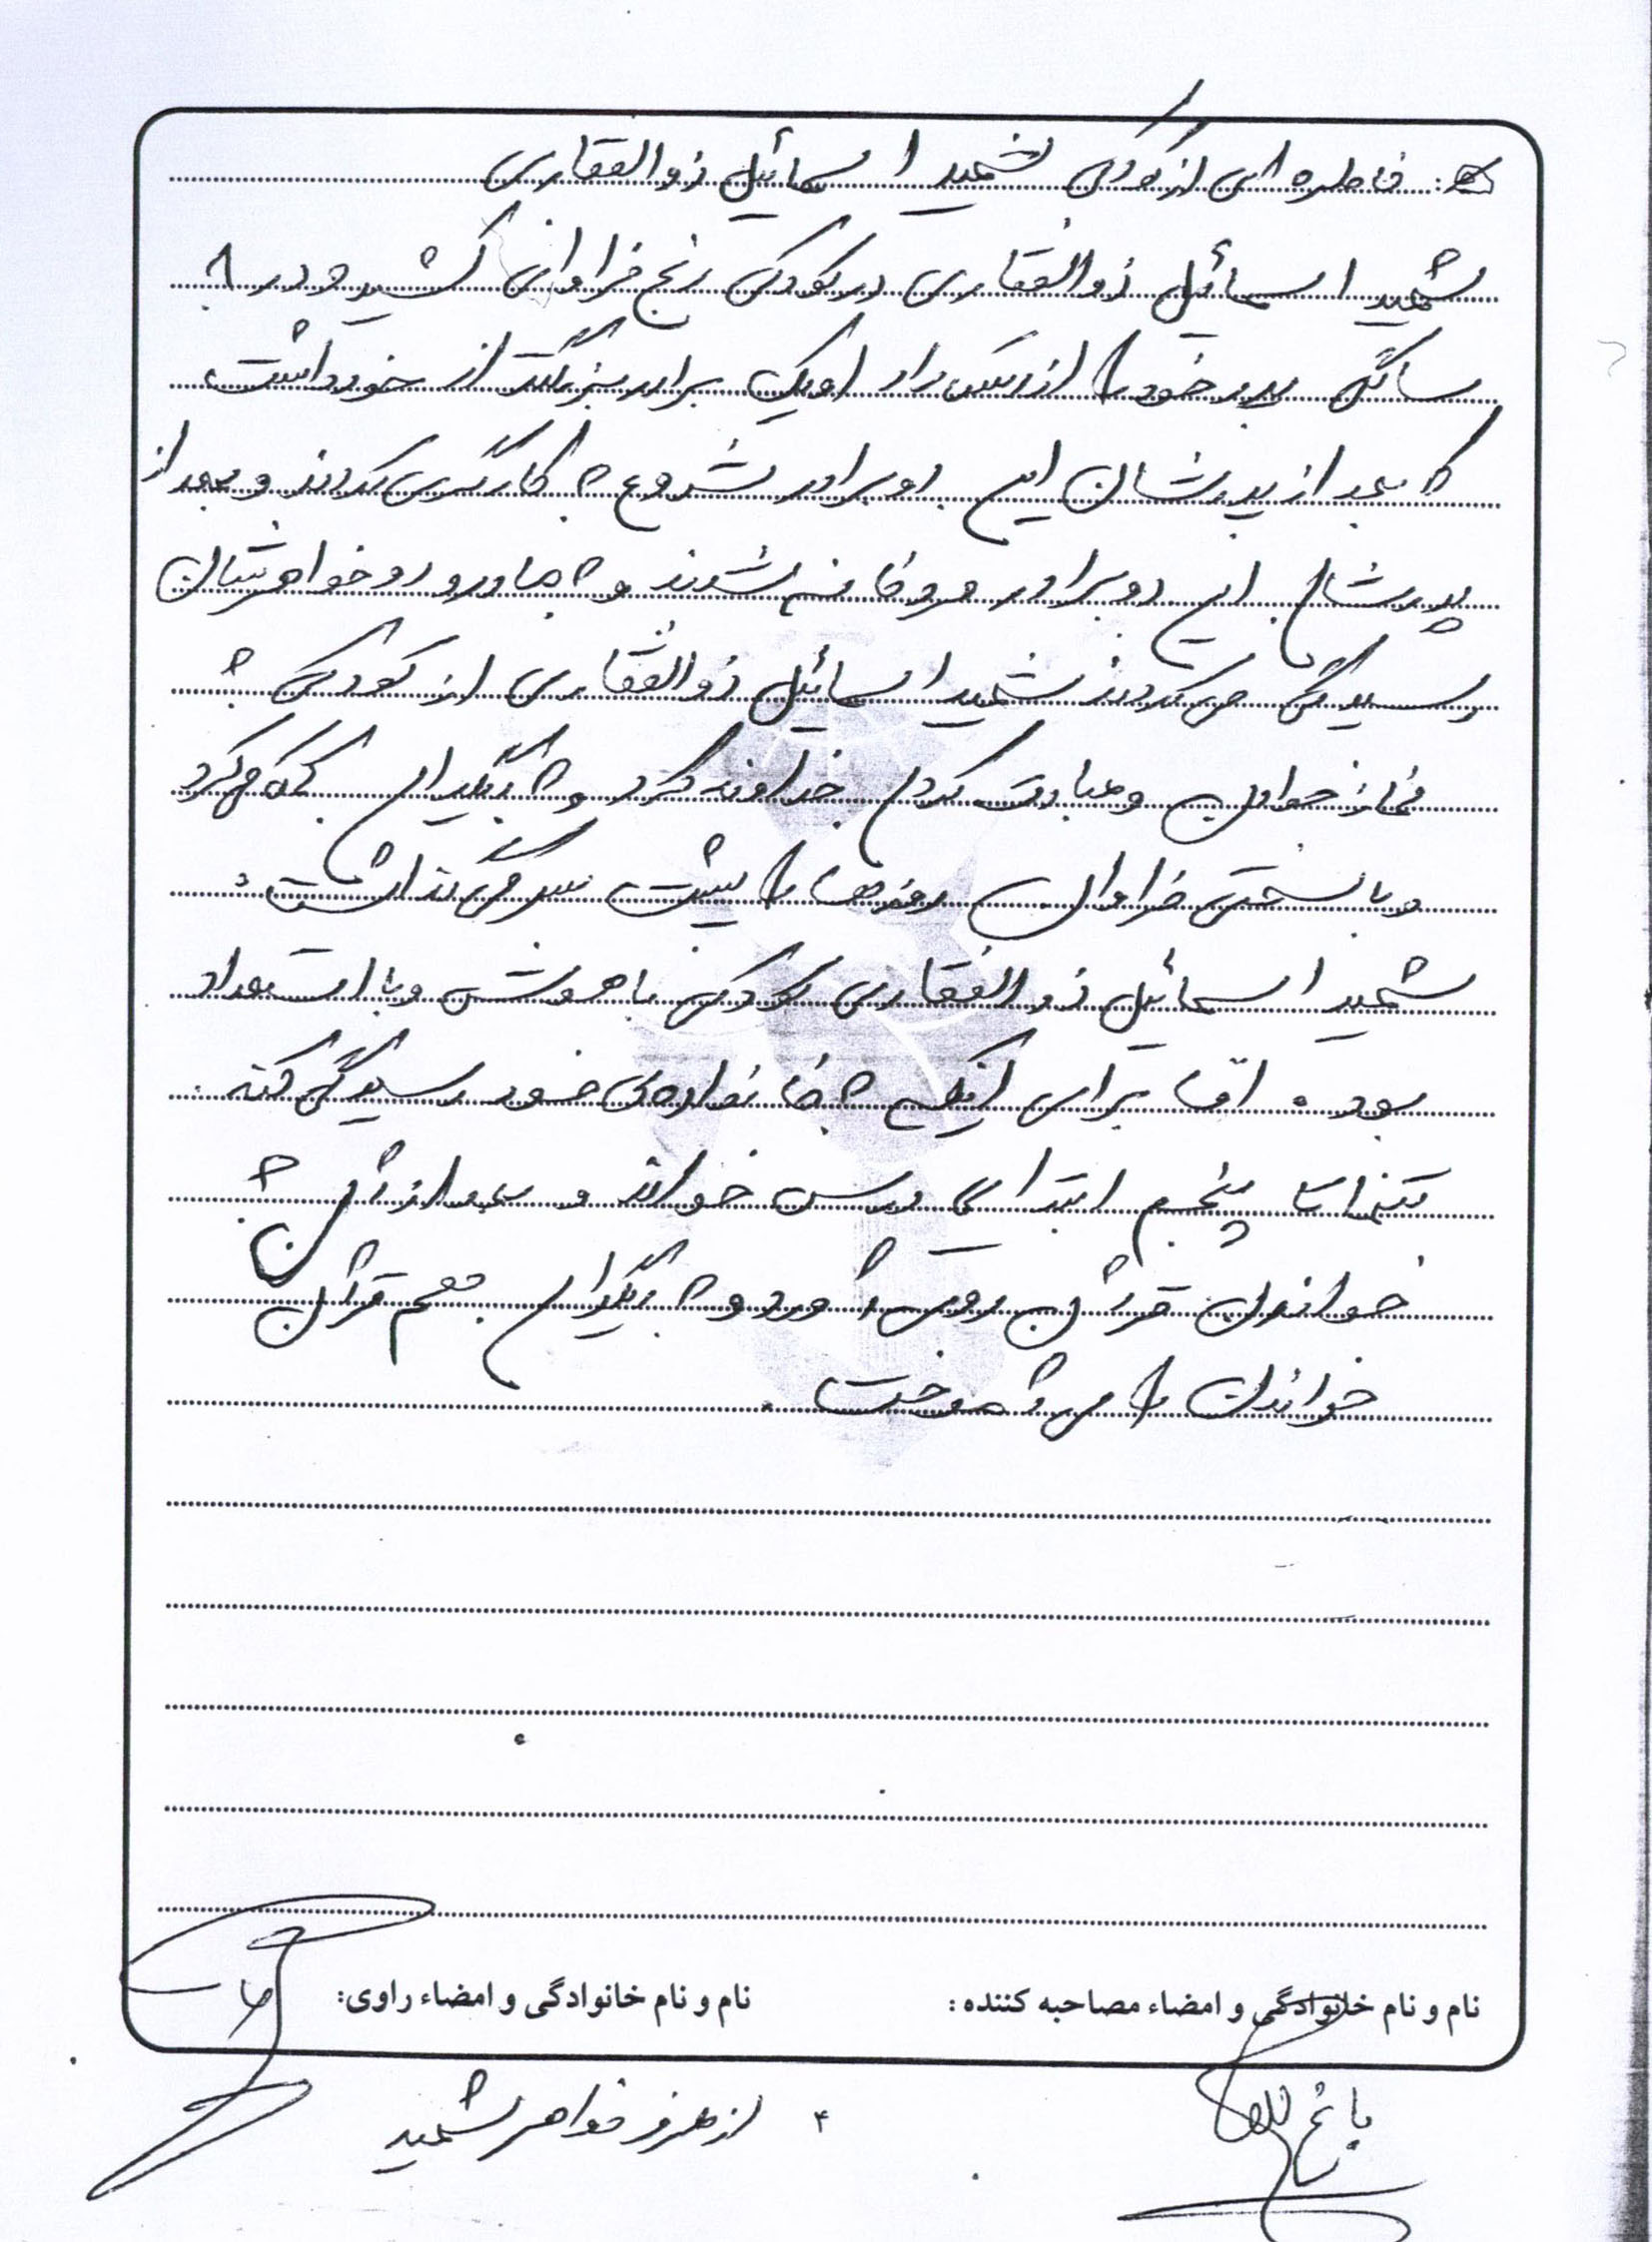 : خاطره ای از کودکی شهید اسمائیل ذوالفقاری
شهید اسمائیل ذوالفقاری در کودکی رنج فراوانی کشید و در ۸
سالگی پدر خود را از دست داد او یک برادر بزرگتر از خود داشت
که بعد از پدرشان این دو برادر شروع به کارگری کردند و بعد از
پدرشان این دو برادر مرد خانه شدند و به مادر و دو خواهرشان
رسیدگی می کردند شهید اسمائیل ذوالفقاری از کودکی به
نماز خواندن و عبادت کردن خداوند کرد و به دیگران کمک می کرد
و با سختی فراوان روزها را پشت سر می گذاشت.
شهید اسمائیل ذوالفقاری کودکی باهوش و با استعداد
بود. امّا برای اینکه به خانواده ی خود رسیدگی کند
تنها تا پنجم ابتدایی درس خواند و بعد از آن به
خواندن قرآن روی آورد و به دیگران هم قرآن
خواندن را می آموخت.
نام و نام خانوادگی و امضاء مصاحبه کننده :
نام و نام خانوادگی و امضاء راوی:
۴
از طرف خواهر شهید